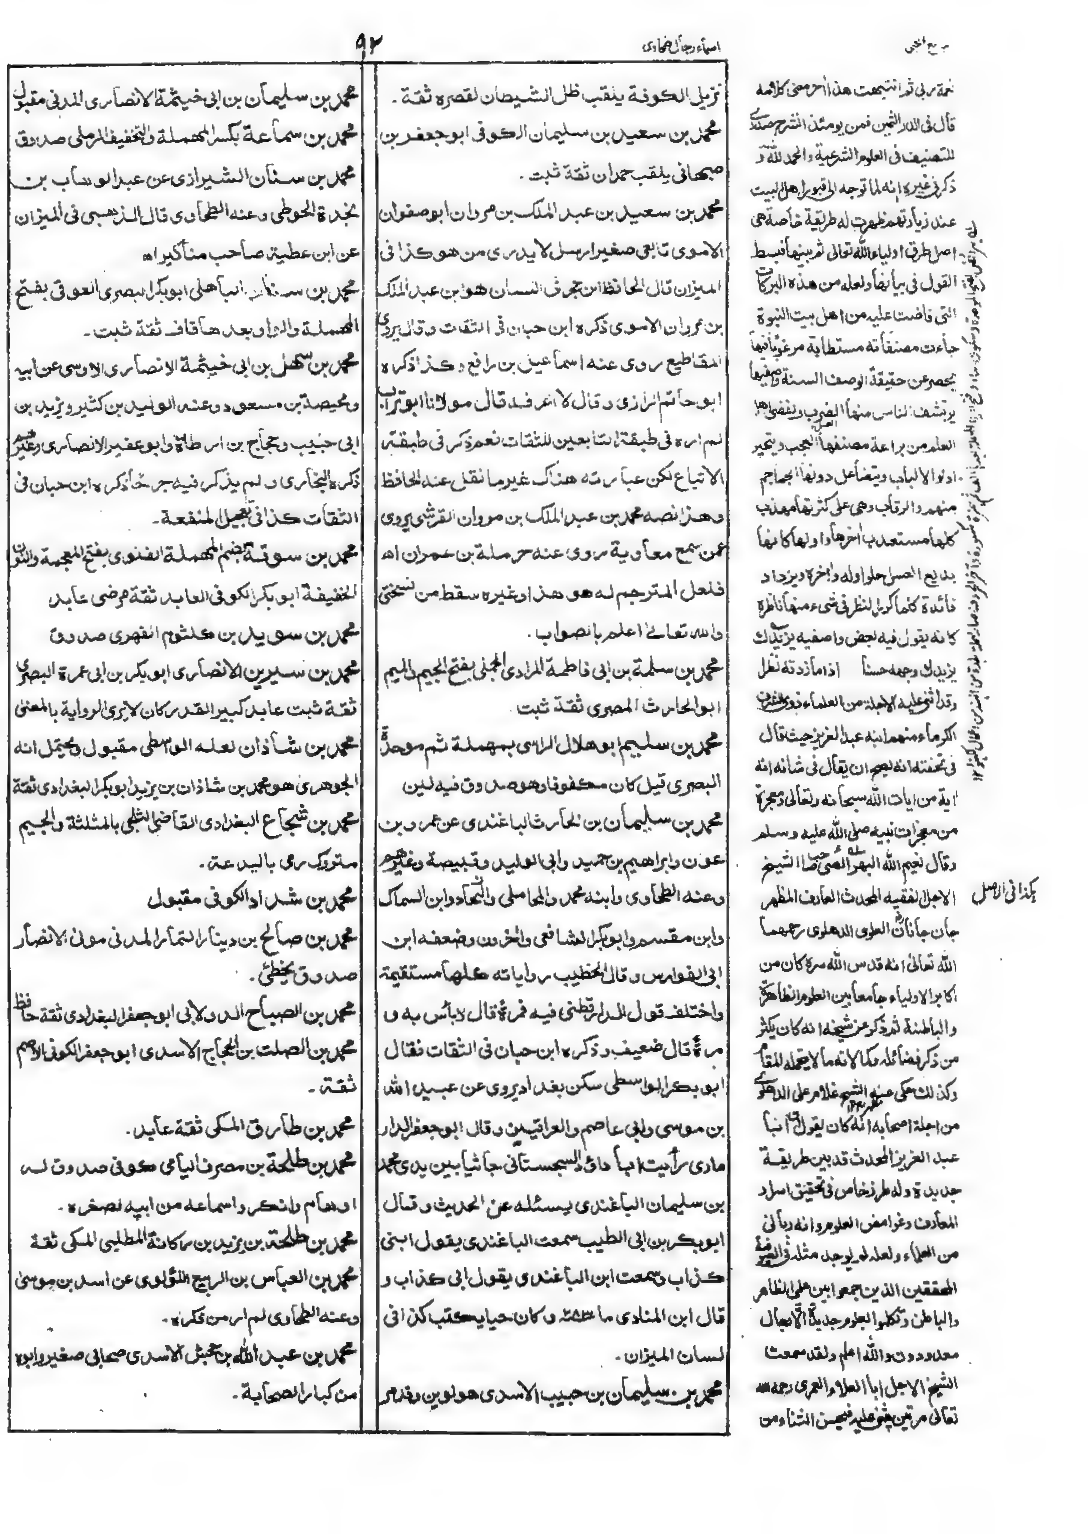 اسماء رجال طحاوى
٩٢
نزيل الكوفة يلقب ظل الشيطان لقصره ثقة .
محمد بن سعيد بن سليمان الكوفى ابو جعفر بن
صبهانى يلقب حمدان ثقة ثبت .
محمد بن سعيد بن عبد الملك بن مروان ابو صفوان
الاموى تابعى صغير ارسل لا يدرى من هو كذا فى
الميزان قال الحافظ ابن حجر فى اللسان هو ابن عبد الملك
بن مروان الاموى ذكره ابن حبان فى الثقات وقال يروى
المقاطيع روى عنه اسماعيل بن رافع وكذا ذكره
ابو حاتم الرازى وقال لا اعرفه قال مولانا ابو تراب
لم اره فى طبقة التابعين للثقات نعم ذكر فى طبقة
الاتباع لكن عبارته هناك غير ما نقل عنه الحافظ
وهذا نصه محمد بن عبد الملك بن مروان القرشى يروى
عمن سمع معاوية روى عنه حرملة بن عمران اه
فلعل المترجم له هو هذا وغيره سقط من نسختى
والله تعالى اعلم بالصواب .
محمد بن سلمة بن ابى فاطمة المرادى الجملى بفتح الجيم والميم
ابو الحارث المصرى ثقة ثبت
محمد بن سليم ابو هلال الراسبى بمهملة ثم موحدة
البصرى قيل كان مكفوفا وهو صدوق فيه لين
محمد بن سليمان بن الحارث الباغندى عن عمرو بن
عون وابراهيم بن حميد وابى الوليد وقبيصة وغيرهم
وعنه الطحاوى وابنه محمد والمحاملى والنجاد وابن السماك
وابن مقسم وابو بكر الشافعى واخرون وضعفه ابن
ابى الفوارس وقال الخطيب رواياته كلها مستقيمة
واختلف قول الدارقطنى فيه فمرة قال لا بأس به و
مرة قال ضعيف وذكره ابن حبان فى الثقات فقال
ابو بكر الواسطى سكن بغداد يروى عن عبيد الله
بن موسى وابى عاصم والعراقيين وقال ابو جعفر الدار
مادى رأيت ابا داؤد السجستانى جاثيا بين يدى محمد
بن سليمان الباغندى يسئله عن الحديث وقال
ابو بكر بن ابى الطيب سمعت الباغندى يقول ابنى
كذاب وسمعت ابن الباغندى يقول ابى كذاب و
قال ابن المنادى مات ٢٨٣ه وكان حيا يكتب كذا فى
لسان الميزان .
محمد بن سليمان بن حبيب الاسدى هو لوين وقد مر
محمد بن سليمان بن ابى خيثمة الانصارى المدنى مقبول
محمد بن سماعة بكسر المهملة والتخفيف الرملى صدوق
محمد بن سنان الشيرازى عن عبد الوهاب بن
نجدة الحوطى وعنه الطحاوى قال الذهبى فى الميزان
عن ابن عطية صاحب مناكير اه
محمد بن سنان الباهلى ابو بكر البصرى العوقى بفتح
المهملة والواو بعدها قاف ثقة ثبت .
محمد بن سهل بن ابى خيثمة الانصارى الاوسى عن ابيه
ومحيصة بن مسعود وعنه الوليد بن كثير ويزيد بن
ابى حبيب وحجاج بن ارطاة وابو عفير الانصارى وغيرهم
ذكره البخارى ولم يذكر فيه جرحا ذكره ابن حبان فى
الثقات كذا فى تعجيل المنفعة .
محمد بن سوقة بضم المهملة الغنوى بفتح المعجمة والنون
الخفيفة ابو بكر الكوفى العابد ثقة مرضى عابد
محمد بن سويد بن كلثوم الفهرى صدوق
محمد بن سيرين الانصارى ابو بكر بن ابى عمرة البصرى
ثقة ثبت عابد كبير القدر كان لا يرى الرواية بالمعنى
محمد بن شاذان لعله الواسطى مقبول ويحتمل انه
الجوهرى هو محمد بن شاذان بن يزيد ابو بكر البغدادى ثقة
محمد بن شجاع البغدادى القاضى الثلجى بالمثلثة والجيم
متروك رمى بالبدعة .
محمد بن شداد الكوفى مقبول
محمد بن صالح بن دينار التمار المدنى مولى الانصار
صدوق يخطئ .
محمد بن الصباح الدولابى ابو جعفر البغدادى ثقة حافظ
محمد بن الصلت بن الحجاج الاسدى ابو جعفر الكوفى الاصم
ثقة .
محمد بن طارق المكى ثقة عابد .
محمد بن طلحة بن مصرف اليامى كوفى صدوق له
اوهام وانكروا سماعه من ابيه لصغره .
محمد بن طلحة بن يزيد بن ركانة المطلبى المكى ثقة
محمد بن العباس بن الربيع اللؤلؤى عن اسد بن موسى
وعنه الطحاوى لم ار من ذكره .
محمد بن عبد الله بن جحش الاسدى صحابى صغير وابوه
من كبار الصحابة .
قال فى الدر الثمين فمن يومئذ انشرح صدرى
للتصنيف فى العلوم الشرعية والحمد لله و
ذكر فى غيره انه لما توجه الى قبور اهل البيت
عند زيارتهم ظهرت له طريقة خاصة هى
اصل طرق اولياء الله تعالى ثم بينها فبسط
القول فى بيانها ولعله من هذه البركات
التى فاضت عليه من اهل بيت النبوة
جاءت مصنفاته مستطابة مرغوبا فيها
يحصر عن حقيقة الوصف السنة واصفيها
العلم من براعة مصنفها العجب ويتحير
اولو الالباب ويتضاءل دونها الجماجم
منهم والرقاب وهى على كثرتها مهذب
كلها مستعذب اخرها واولها كانها
بدايع العسل حلو اوله واخره ويزداد
فائدة كلما كرر النظر فى شىء منها ناظره
كانه يقول فيه بعض واصفيه يزيدك
يزيدك وجهه حسنا اذا ما زدته نظرا
وقد اثنى عليه الاجلة من العلماء
الكرماء منهم ابنه عبد العزيز حيث قال
فى تحفته انه يصح ان يقال فى شانه انه
اية من ايات الله سبحانه وتعالى ومعجزة
من معجزات نبيه صلى الله عليه وسلم
وقال نعيم الله البهرائچى صاحب الشيخ
الاجل الفقيه المحدث العارف المظهر
جان جانان العلوى الدهلوى رحمهما
الله تعالى انه قدس الله سره كان من
اكابر الاولياء جامعا بين العلوم الظاهرة
والباطنة ثم ذكر عن شيخه انه كان يكثر
من ذكر فضائله وكمالاته ما لا يحمله المقام
وكذلك حكى عنه الشيخ غلام على الدهلوى
من اجلة اصحابه انه كان يقول ان ابا
عبد العزيز المحدث قد بين طريقة
جديدة وله طرز خاص فى تحقيق اسرار
المعارف وغوامض العلوم وانه ربانى
من العلماء ولعله لم يوجد مثله فى الصوفية
المحققين الذين جمعوا بين علمى الظاهر
والباطن وتكلموا بعلوم جديدة الا رجال
معدودون والله اعلم ولقد سمعت
الشيخ الاجل ابا العلاء العمرى رحمه الله
تعالى مرتين يثنى عليه فيحسن الثناء من
كذا فى الاصل